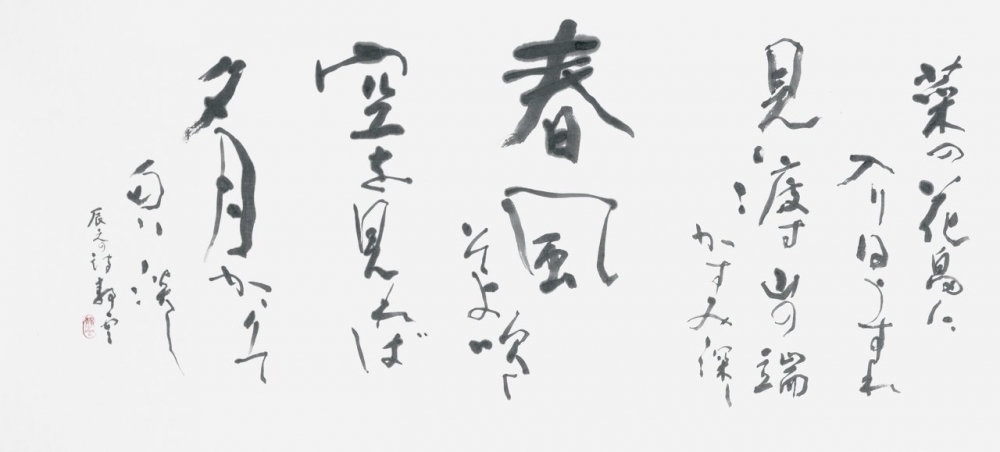 菜の花畠に
入り日うすれ
見渡す山の端
かすみ深し
春風
そよ吹く
空を見れば
夕月かゝりて
匂い淡し
辰之の詩